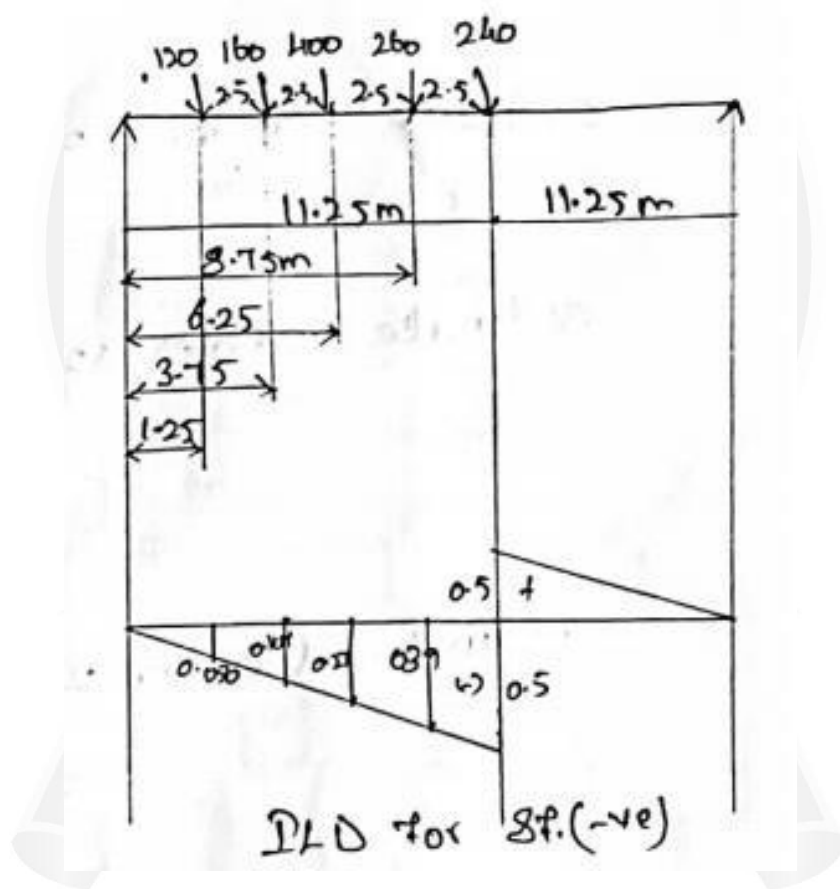 120 160 400 260 240
2.5 2.5 2.5 2.5
11.25m 11.25m
8.75m
6.25
3.75
1.25
0.5 +
(-) 0.5
ILD for Sf.(-ve)